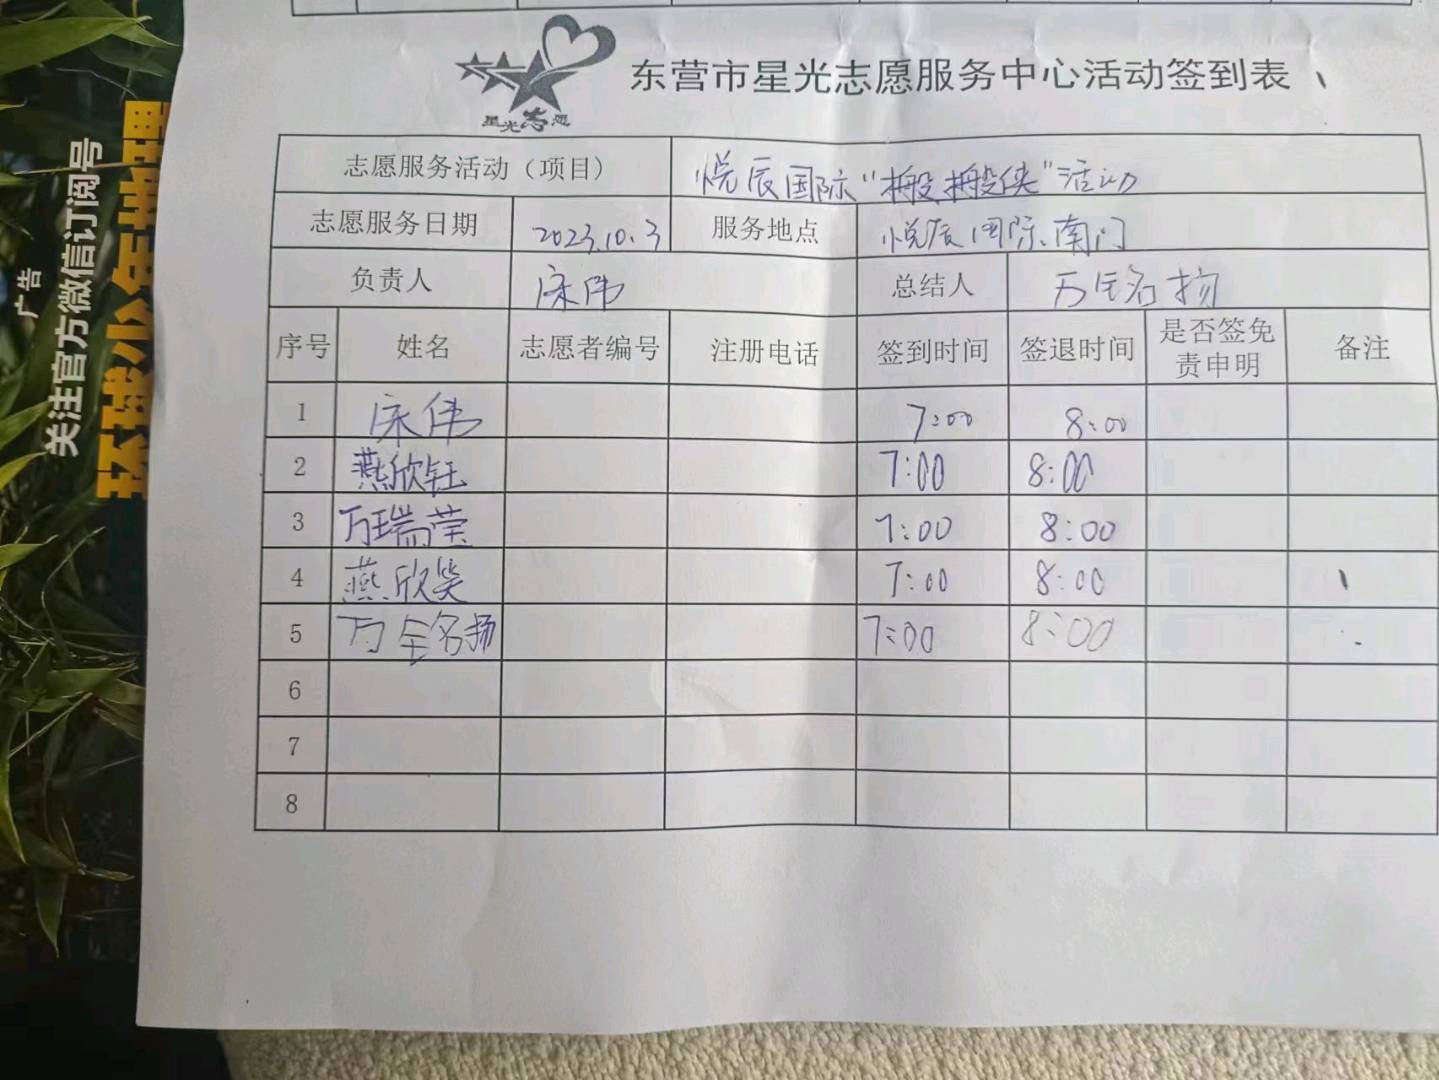 星光志愿
东营市星光志愿服务中心活动签到表
志愿服务活动（项目） 悦辰国际“搬搬侠”活动
志愿服务日期 2023.10.3 服务地点 悦辰国际南门
负责人 宋伟 总结人 万全名扬
序号 姓名 志愿者编号 注册电话 签到时间 签退时间 是否签免责申明 备注
1 宋伟 7:00 8:00
2 燕欣钰 7:00 8:00
3 万瑞莹 7:00 8:00
4 燕欣笑 7:00 8:00
5 万全名扬 7:00 8:00
6
7
8
环球少年地理
关注官方微信订阅号
广告